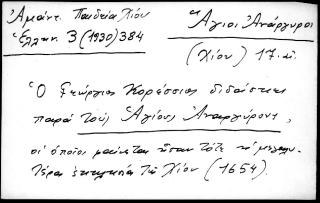 Ἀμάντ. Παιδεία Χίου
Ἑλλην. 3 (1930) 384
Ἅγιοι Ἀνάργυροι
(Χίου) 17. αἰ.
Ὁ Γεώργιος Κορέσσιος διδάσκει
παρὰ τοὺς Ἁγίους Ἀναργύρους,
οἱ ὁποῖοι φαίνεται ἦσαν τότε ἡ μεγαλυ-
τέρα ἐκκλησία τῆς Χίου (1654).